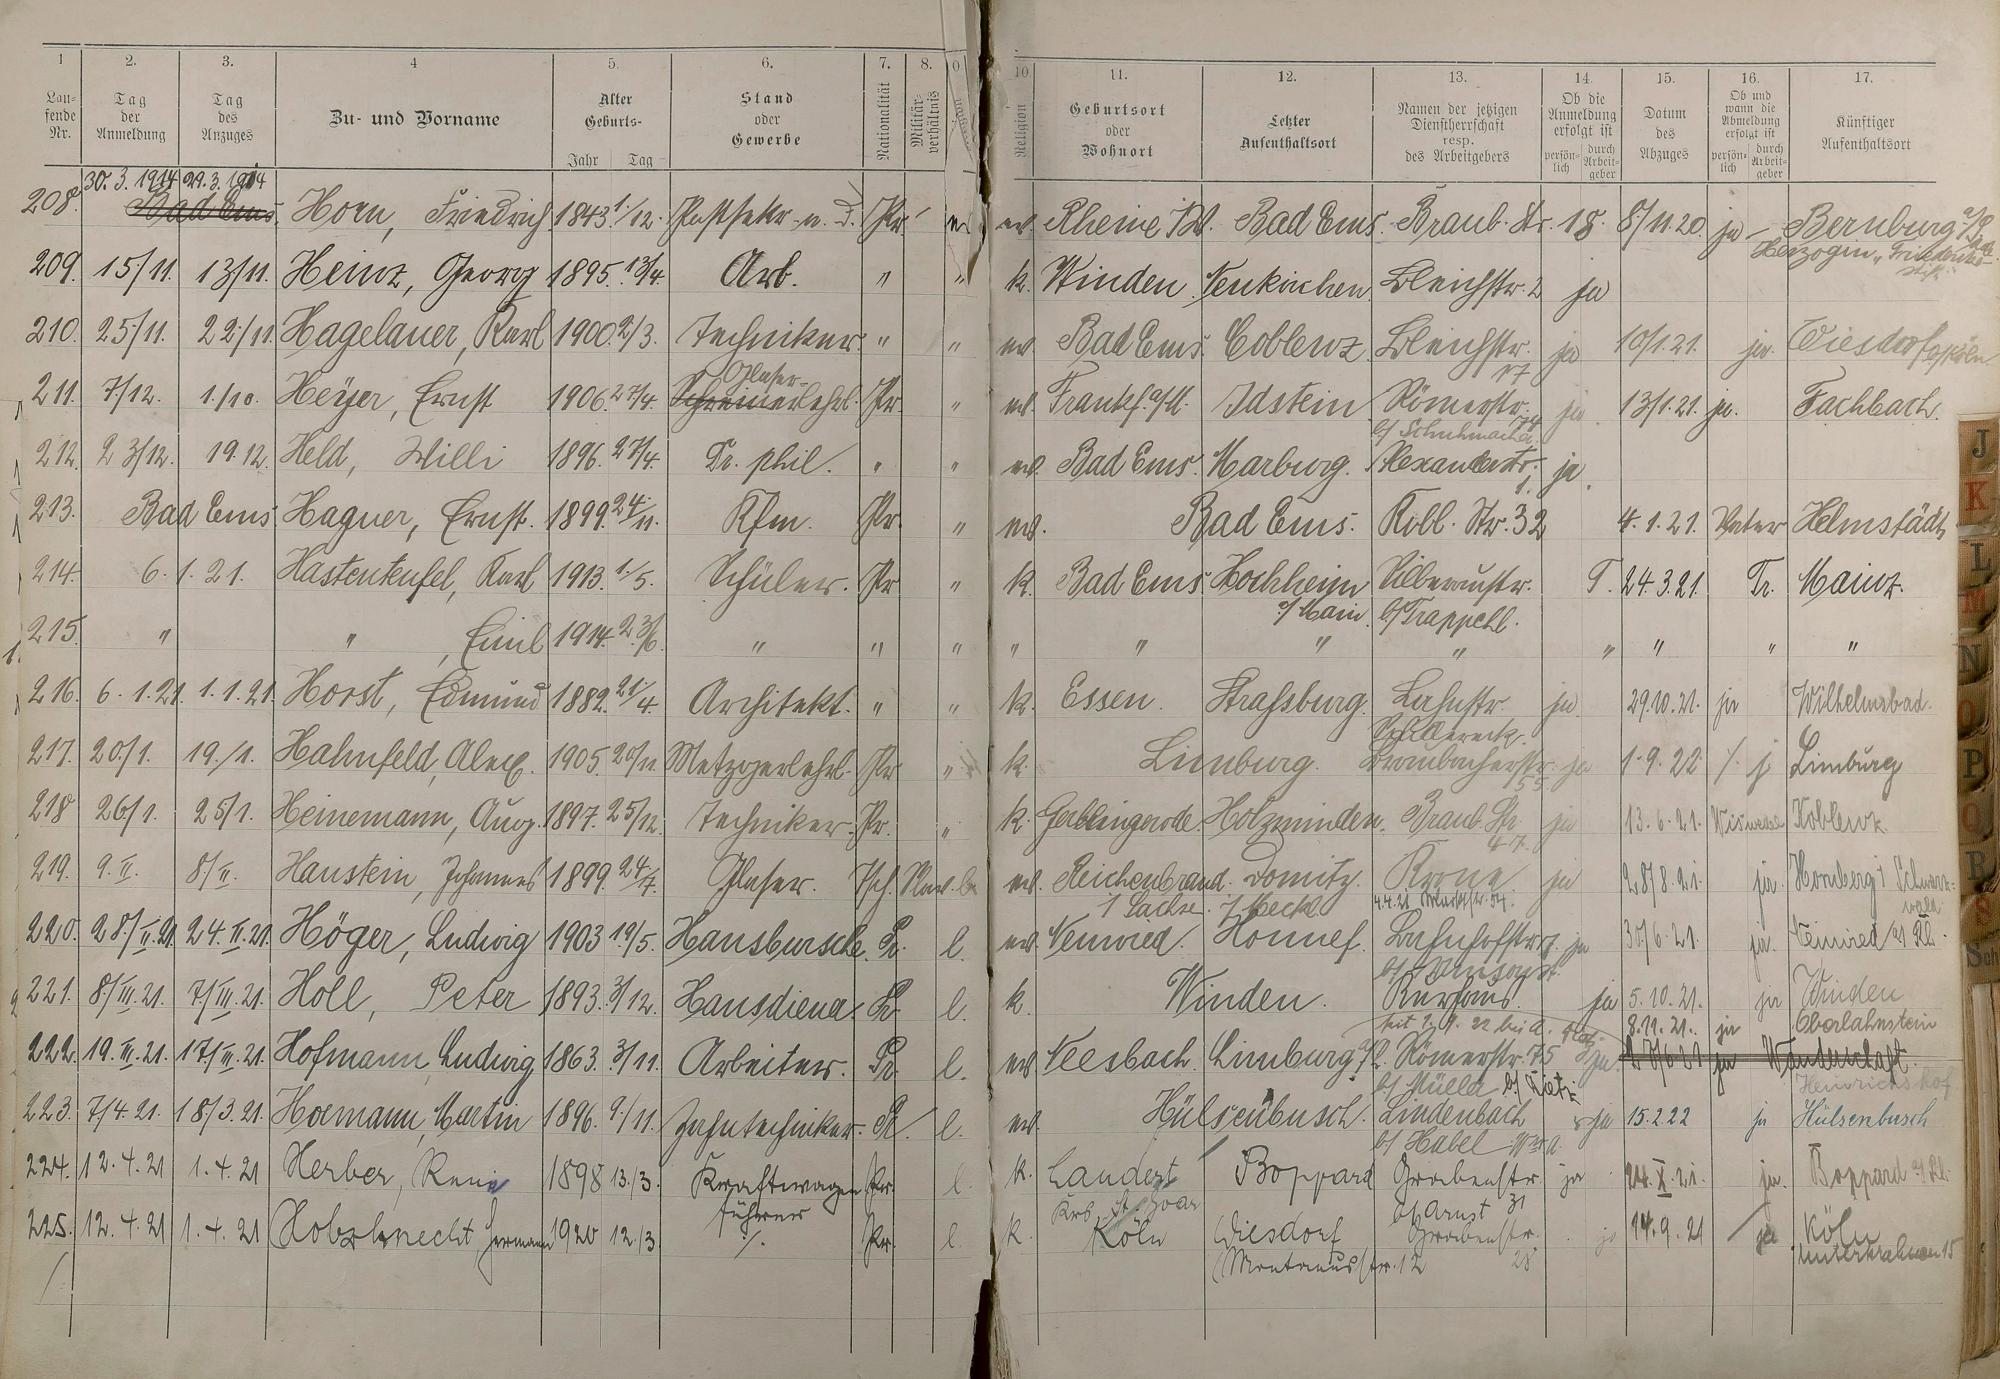 1 2. 3. 4 5. 6. 7. 8. 10 11. 12. 13. 14. 15. 16. 17.
Lau-fende Nr. Tag der Anmeldung Tag des Anzuges Zu- und Vorname Alter Geburts- Jahr Tag Stand oder Gewerbe Nationalität Militär-verhältnis Religion Geburtsort oder Wohnort Letzter Aufenthaltsort Namen der jetzigen Dienstherrschaft resp. des Arbeitgebers Ob die Anmeldung erfolgt ist persön-lich durch Arbeit-geber Datum des Abzuges Ob und wann die Abmeldung erfolgt ist persön-lich durch Arbeit-geber Künftiger Aufenthaltsort
30. 3. 1914 29. 3. 1914
208. Bad Ems. Horn, Friedrich 1843 1./12. Pr. ev. Rheine i/W. Bad Ems. Braub. Str. 18. 8/11.20. ja Bernburg a/S.
Herzogin
209. 15/11. 13/11. Heinz, Georg 1895. 13/4. Arb. " " k. Winden Neukirchen. Bleichstr. 2 ja
210. 25/11. 22/11. Hagelauer, Karl 1900. 2/3. Techniker. " " ev. Bad Ems. Coblenz. Bleichstr. 17 ja 10/1.21. ja. Wiesdorf b/Köln
Glaser-
211. 7/12. 1./10. Heyer, Ernst 1906. 27/4. Schreinerlehrl. Pr. " ev. Frankf. a/M. Idstein Römerstr. 74 ja 13/1.21. ja. Fachbach.
b/ Schuhmacher
212. 23/12. 19.12. Held, Willi 1896. 27/4. Dr. phil. " " ev. Bad Ems. Marburg. Alexanderstr. 1, ja
213. Bad Ems. Hagner, Ernst. 1899. 24./11. Kfm. Pr. " ev. Bad Ems. Kobl. Str. 32 4.1.21. Vater Helmstädt
214. 6. 1. 21. Hastenteufel, Karl 1913. 1./5. Schüler. Pr " k. Bad Ems Hochheim Silberaustr. T. 24.3.21. Tr. Mainz.
a/Main. b/Trappehl.
215. " " , Emil 1914. 23/6. " " " " " " " " " " "
216. 6. 1. 21. 1. 1. 21. Horst, Edmund 1882. 21/4. Architekt. " " k. Essen. Straßburg. Lahnstr. ja 29.10.21. ja Wilhelmsbad.
217. 20/1. 19./1. Hahnfeld, Alex. 1905. 20/11. Metzgerlehrl. Pr " k. Limburg. ja 1.9.22 j Limburg
218 26/1. 25/1. Heinemann, Aug. 1897. 25/12. Techniker. Pr. " k. Gerblingerode. Holzminden. Braub. Str 47. ja 13.6.21. Koblenz.
219. 9. II. 8/II. Haustein, Johannes 1899. 24/7. Glaser. ev. Reichenbrand Domitz. Krone ja 28/8.21. ja. Hornberg i Schwarz-wald
i Sachse. i/Meckl 4.4.21
220. 28./II.21. 24. II. 21. Höger, Ludwig 1903 19/5. Hausbursche. Pr. l. ev. Neuwied. Honnef. Bahnhofstr. ja 30/6.21. ja. Neuwied a/ Rh.
221. 8/III.21. 7/III.21. Holl, Peter 1893. 3/12. Hausdiener Pr l. k. Winden. Kurhaus. ja 5.10.21. ja Winden
8.11.21. ja Oberlahnstein
222. 19. III. 21. 17/III.21. Hofmann Ludwig 1863. 3/11. Arbeiter. Pr. l. ev Neesbach. Limburg a/L. Römerstr. 75 ja. ja Wanderschaft.
b/ Müller b/ Dietz. Heinrichshof
223. 7/4.21. 18/3.21. Hormann, Martin 1896. 9./11. Zahntechniker. Pr l. ev. Hülsenbusch. Lindenbach ja 15.2.22 ja Hülsenbusch
b/ Habel
224. 12.4.21 1.4.21 Herber, René 1898 13./3. Kraftwagen Pr. l. k. Landert Boppard Grabenstr. ja 24.X.21. ja. Boppard a/ Rh.
führer Krs. St. Goar b/ Arnst 31
225. 12.4.21 1.4.21 Hobsknecht Hermann 1920 12./3 /. Pr. l. k. Köln Wiesdorf Grabenstr. 28 ja 14.9.21 ja Köln
Montanusstr. 12 Unterkrahnen 15
J K L M N O P Q R S Sch